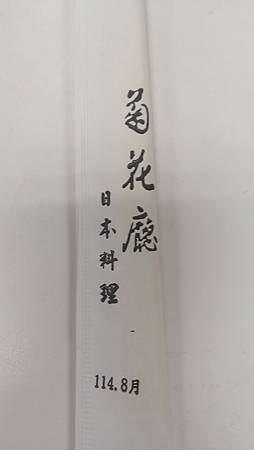 菊花廳
日本料理
114.8月